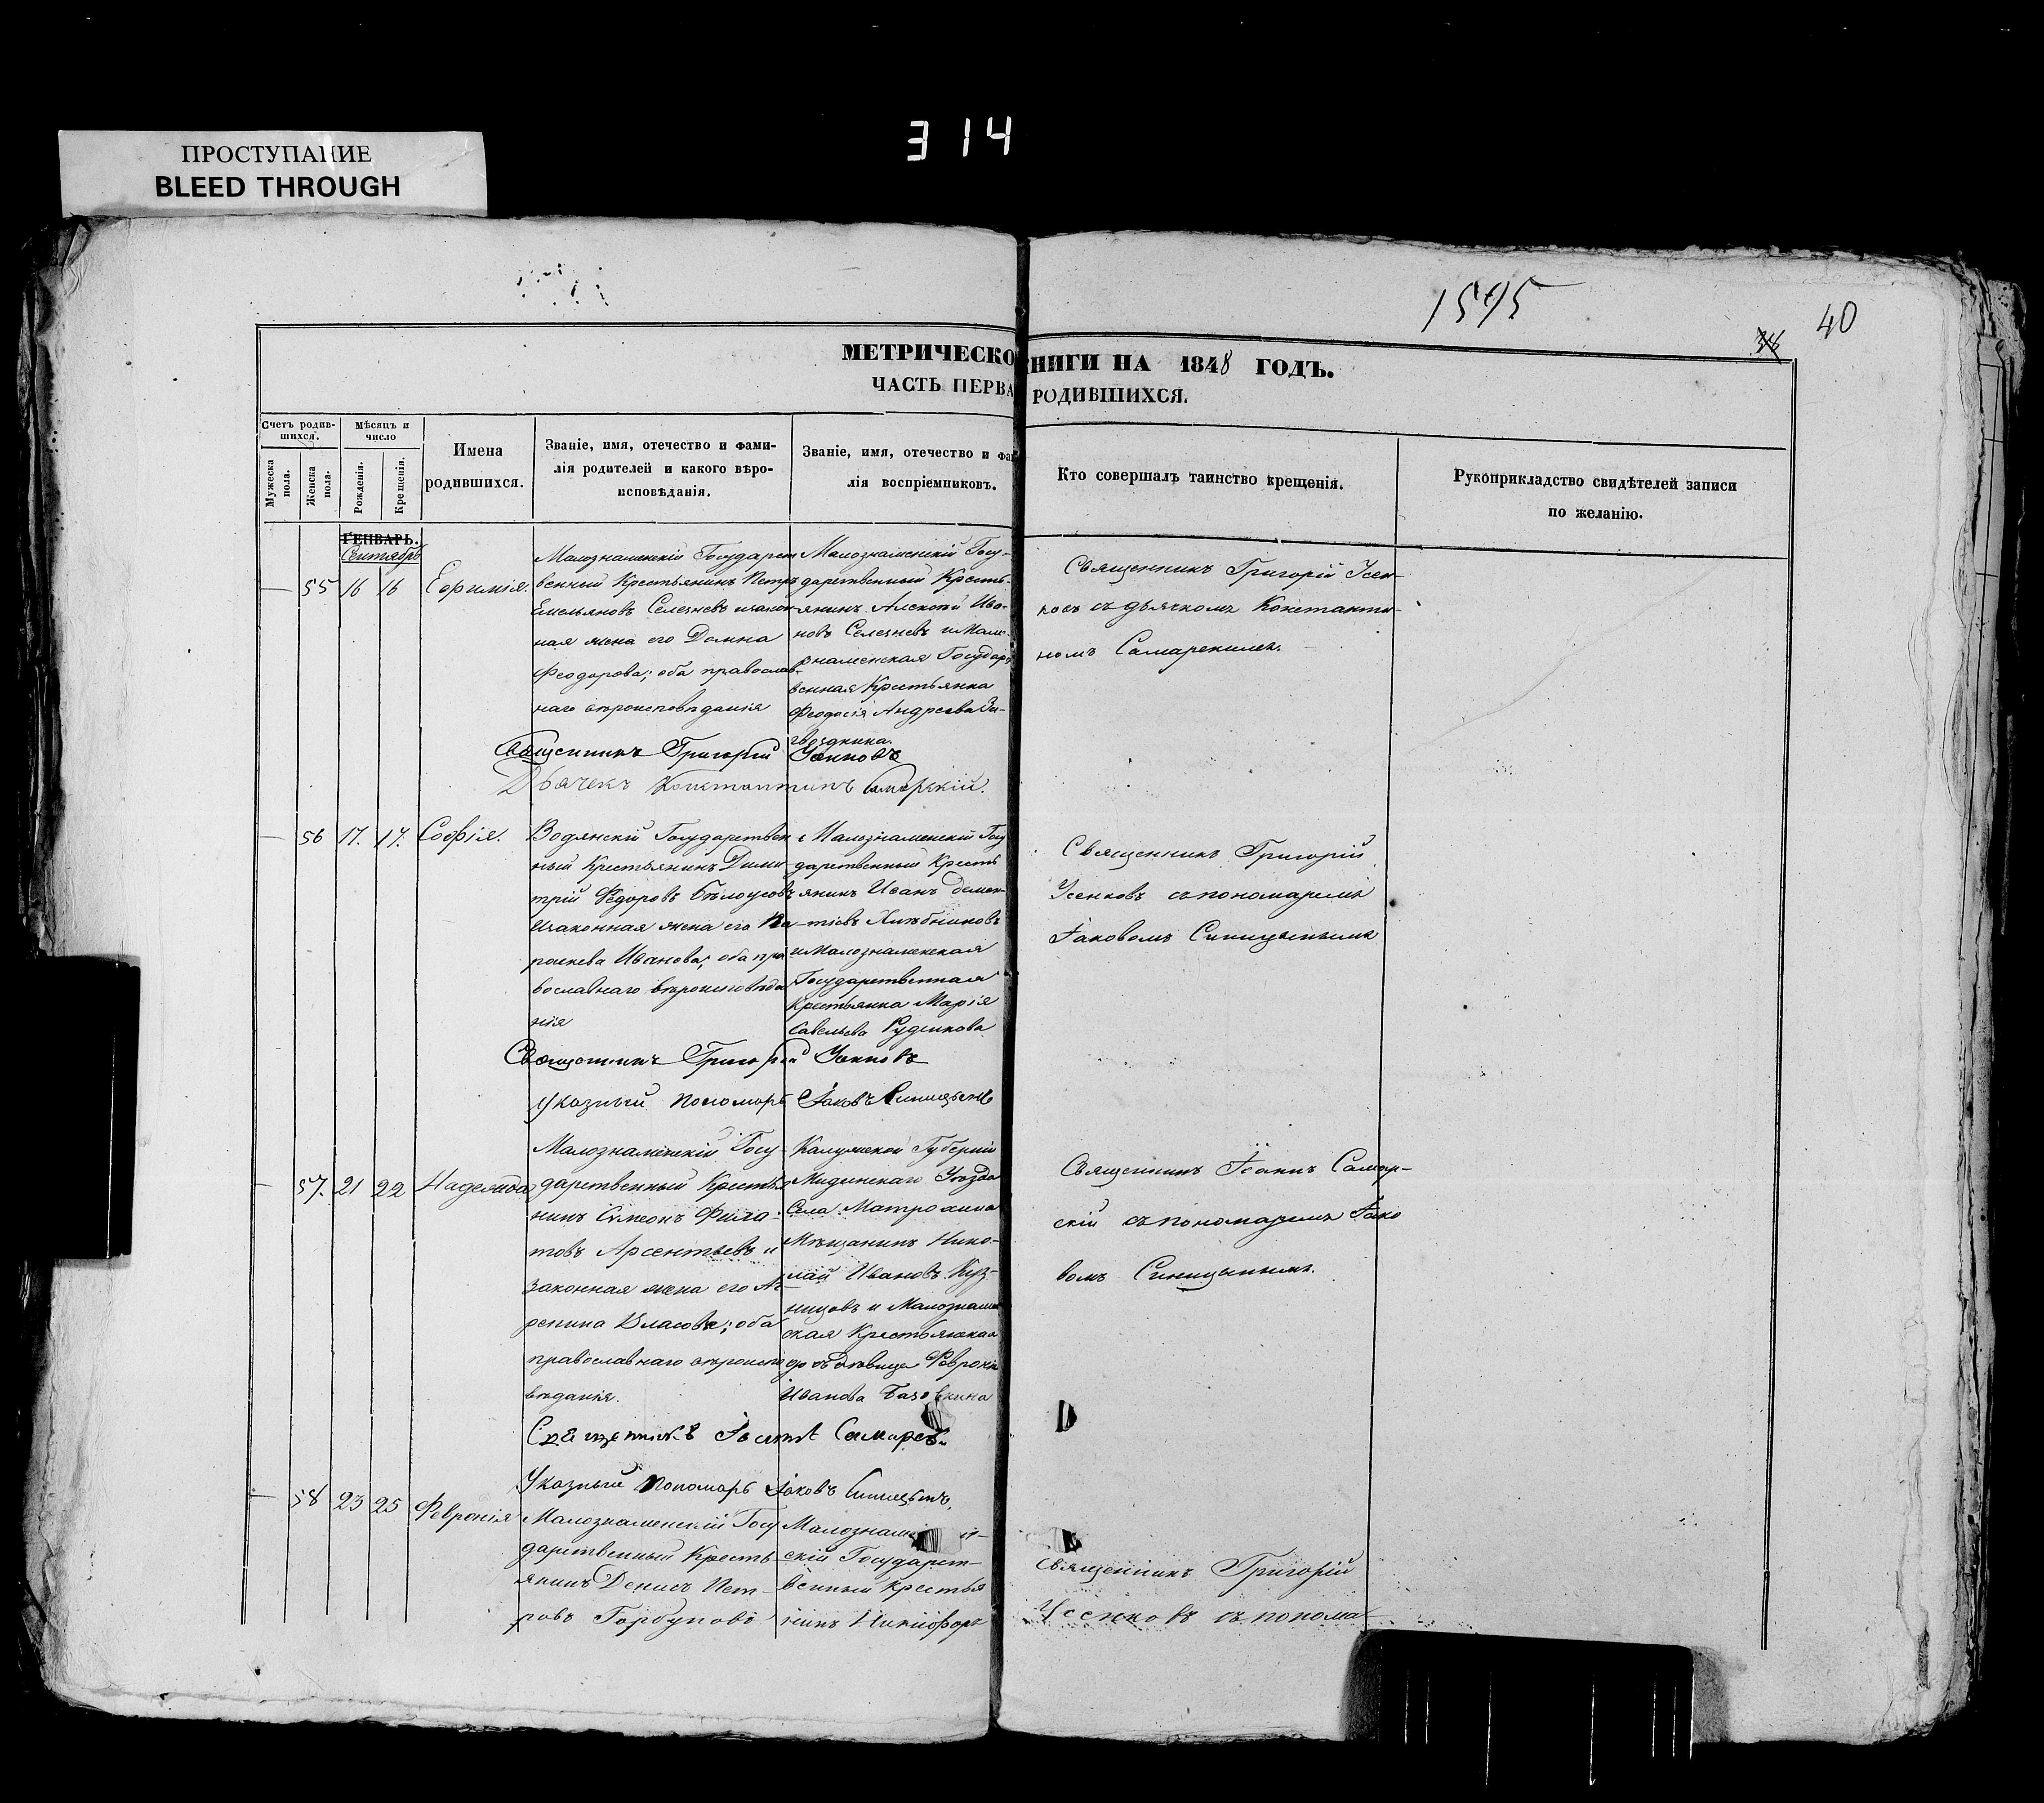 314
ПРОСТУПАНИЕ
BLEED THROUGH
1595
40
38
МЕТРИЧЕСКО НИГИ НА 1848 ГОДЪ.
ЧАСТЬ ПЕРВА РОДИВШИХСЯ.
Счетъ родив-
шихся.
Мужеска пола.
Женска пола.
Мѣсяцъ и
число
Рожденія.
Крещенія.
Имена
родившихся.
Званіе, имя, отечество и фами-
лія родителей и какого вѣро-
исповѣданія.
Званіе, имя, отечество и фа
лія воспріемниковъ.
Кто совершалъ таинство крещенія.
Рукоприкладство свидѣтелей записи
по желанію.
ГЕНВАРЬ.
Сентябрь
— 55 16 16 Евфимія.
Малознаменскій Государст
венный Крестьянинъ Петръ
Емельяновъ Селезневъ и закон
ная жена его Домна
Феодорова; оба православ-
наго вѣроисповѣданія
Малознаменскій Госу-
дарственный Кресть-
янинъ Алексѣй Ива-
новъ Селезневъ и Мало-
знаменская Государ
венная Крестьянка
Феодосія Андреева
Священникъ Григорій Усен-
ковъ съ дьячкомъ Константи-
номъ Самарскимъ.
Священникъ Григорій Усенковъ
Дьячекъ Константинъ Самарскій.
— 56 17. 17. Софія.
Водянскій Государствен
ный Крестьянинъ Дими
трій Федоровъ Бѣлоусовъ
и законная жена его Па
раскева Иванова; оба пра
вославнаго вѣроисповѣда
нія
Малознаменскій Госу
дарственный Кресть
янинъ Иванъ Демен-
тіевъ Хлѣбниковъ
и Малознаменская
Государственная
Крестьянка Марія
Савельева Рудникова
Священникъ Григорій
Усенковъ съ пономаремъ
Іаковомъ Синицынымъ
Священникъ Григорій Усенковъ
Указный пономарь Іаковъ Синицынъ
— 57. 21 22 Надежда
Малознаменскій Госу-
дарственный Крестья
нинъ Симеонъ Фила-
товъ Арсентьевъ и
законная жена его Аг
репина Власова; оба
православнаго вѣроиспо
вѣданія.
Калужской Губерніи
Мидинскаго Уѣзда
Села Матрохина
Мѣщанинъ Нико-
лай Ивановъ Куз-
нецовъ и Малознамен
ская Крестьянская
дѣвица Февронія
Иванова
Священникъ Іоаннъ Самар-
скій съ пономаремъ Іако
вомъ Синицынымъ.
Священникъ Іоаннъ Самарск.
Указный пономарь Іаковъ Синицынъ,
— 58 23 25 Февронія
Малознаменскій Госу
дарственный Кресть
янинъ Денисъ Пет-
ровъ Горбуновъ
Малознаме
скій Государст-
венный Крестья
нинъ Никифоръ
Священникъ Григорій
Усенковъ съ понома